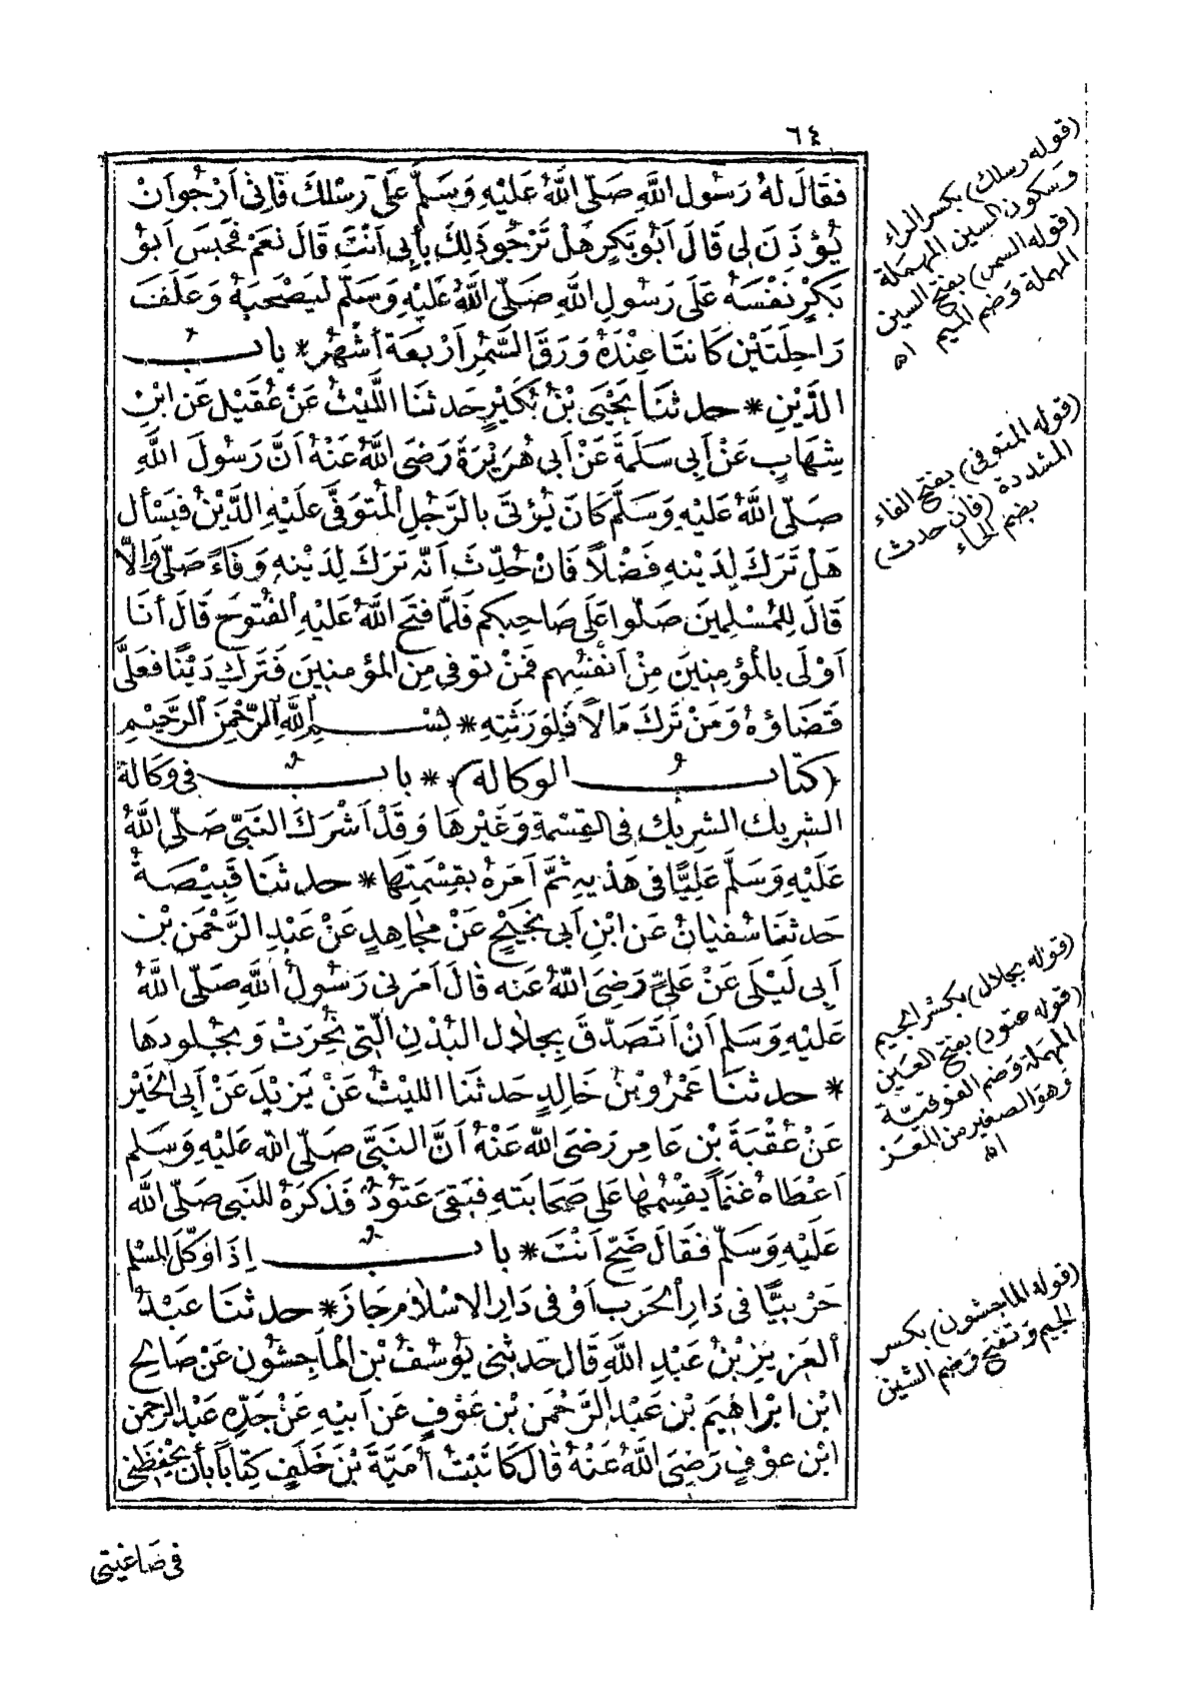 ٦٤
فَقَالَ لَهُ رَسُولُ اللَّهِ صَلَّى اللَّهُ عَلَيْهِ وَسَلَّمَ عَلَى رِسْلِكَ فَاِنِّي اَرْجُو اَنْ
يُؤْذَنَ لِي قَالَ اَبُو بَكْرٍ هَلْ تَرْجُو ذَلِكَ بِأَبِي اَنْتَ قَالَ نَعَمْ فَحَبَسَ اَبُو
بَكْرٍ نَفْسَهُ عَلَى رَسُولِ اللَّهِ صَلَّى اللَّهُ عَلَيْهِ وَسَلَّمَ لِيَصْحَبَهُ وَعَلَفَ
رَاحِلَتَيْنِ كَانَتَا عِنْدَهُ وَرَقَ السَّمُرِ اَرْبَعَةَ أَشْهُرٍ * بابُ
الدَّيْنِ * حدثنَا يَحْيَى بْنُ بُكَيْرٍ حَدثنَا اللَّيْثُ عَنْ عُقَيْلٍ عَن ابْنِ
شِهَابٍ عَنْ اَبِي سَلَمَةَ عَنْ اَبِي هُرَيْرَةَ رَضِيَ اللَّهُ عَنْهُ اَنَّ رَسُولَ اللَّهِ
صَلَّى اللَّهُ عَلَيْهِ وَسَلَّمَ كَانَ يُؤْتَى بِالرَّجُلِ الْمُتَوَفَّى عَلَيْهِ الدَّيْنُ فَيَسْأَل
هَلْ تَرَكَ لِدَيْنِهِ فَضْلًا فَاِنْ حُدِّثَ اَنَّهُ تَرَكَ لِدَيْنِهِ وَفَاءً صَلَّى وَاِلَّا
قَالَ لِلْمُسْلِمِينَ صَلُّوا عَلَى صَاحِبِكم فَلَمَّا فَتَحَ اللَّهُ عَلَيْهِ الْفُتُوحَ قَالَ أَنَا
اَوْلَى بِالْمُؤْمِنِينَ مِنْ اَنْفُسِهِم فَمَنْ تُوفِّي مِنَ الْمُؤمِنِينَ فَتَرَكَ دَيْنًا فَعَلَيَّ
قَضَاؤهُ وَمَنْ تَرَكَ مَالًا فَلِوَرَثَتِهِ * بِسْمِ اللَّهِ الرَّحْمَنِ الرَّحِيْمِ
(كتابُ الوكالة) * بابٌ فِي وَكَالَةِ
الشريك الشريك فى القِسْمَةِ وَغَيْرِهَا وَقَدْ اَشْرَكَ النَّبِيُّ صَلَّى اللَّهُ
عَلَيْهِ وَسَلَّمَ عَلِيًّا فِي هَدْيِهِ ثُمَّ اَمَرَهُ بِقِسْمَتِهَا * حدثنَا قَبِيْصَةُ
حَدثنَا سُفْيَانُ عَن ابْنِ اَبِي نَجِيْحٍ عَنْ مُجَاهِدٍ عَنْ عَبْدِ الرَّحْمَنِ بْنِ
اَبِي لَيْلَى عَنْ عَلِيٍّ رَضِيَ اللَّهُ عَنه قَالَ اَمَرَنِي رَسُولُ اللَّهِ صَلَّى اللَّهُ
عَلَيْهِ وَسَلَم اَنْ اَتَصَدَّقَ بِجِلَال الْبُدْنِ الَّتِي نُحِرَتْ وَبِجُلُودهَا
* حدثنَا عَمْرُو بْنُ خَالِدٍ حَدثنَا الليْثُ عَنْ يَزِيْدَ عَنْ اَبِي الْخَيْرِ
عَنْ عُقْبَةَ بْنِ عَامِرٍ رَضِيَ اللَّهُ عَنْهُ اَنَّ النَّبِيَّ صَلَّى اللَّه عَلَيْهِ وَسَلَم
اَعْطَاهُ غَنَمًا يَقْسِمُهَا عَلَى صَحَابَتِهِ فَبَقِيَ عَتُودٌ فَذَكَرَهُ للنَبِي صَلَّى اللَّه
عَلَيْهِ وَسَلَّمَ فَقَالَ ضَحِّ اَنْتَ * بابٌ اِذَا وَكَّلَ الْمُسْلِم
حَرْبِيًّا فِي دَارِ الْحَرْبِ اَوْ فِي دَارِ الاسْلَامِ جَازَ * حدثنَا عَبْدُ
الْعَزِيزِ بْنُ عَبْدِ اللَّهِ قَالَ حَدثنِي يُوسُفُ بْنُ الْمَاجِشُون عَنْ صَالِحِ
ابْنِ اِبْرَاهِيمَ بْنِ عَبْدِ الرَّحْمَنِ بْنِ عَوْفٍ عَن اَبِيْهِ عَنْ جَدِّهِ عَبْدِ الرحمن
ابْنِ عَوْفٍ رَضِيَ اللَّهُ عَنْهُ قَالَ كَاتَبْتُ اُمَيَّةَ بْنَ خَلَفٍ كِتَابًا بِأَنْ يَحْفَظَنِي
فِي صَاغِيَتِي
(قوله رسلك) بكسر الراء
وسكون السين المهملة
(قوله السمر) بفتح السين
المهملة وضم الميم
اه
(قوله المتوفى) بفتح الفاء
المشددة (فان حدث)
بضم الحاء
(قوله بجلال) بكسر الجيم
(قوله عتود) بفتح العين
المهملة وضم الفوقية
وهو الصغير من المعز
اه
(قوله الماجشون) بكسر
الجيم وتفتح وضم الشين